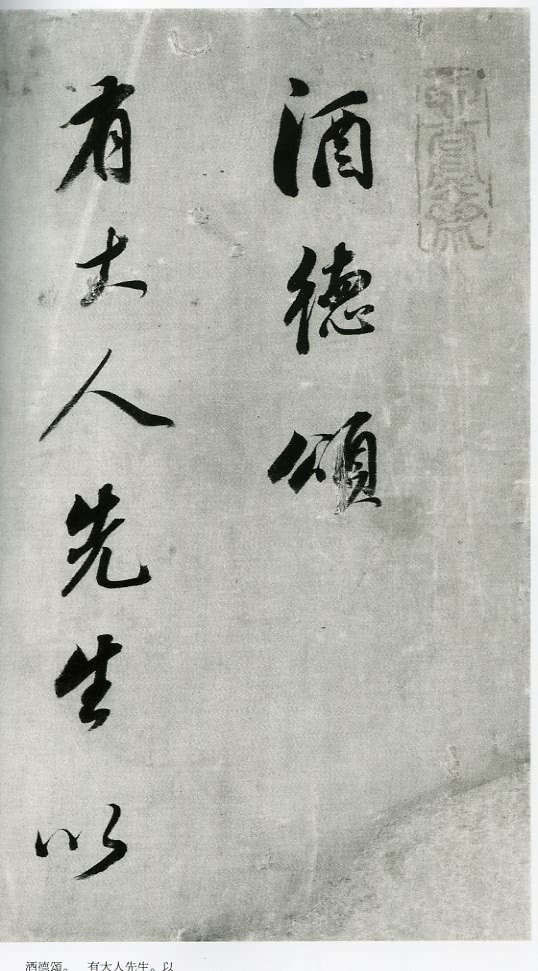 酒德頌
有大人先生以
酒德頌。 有大人先生。以